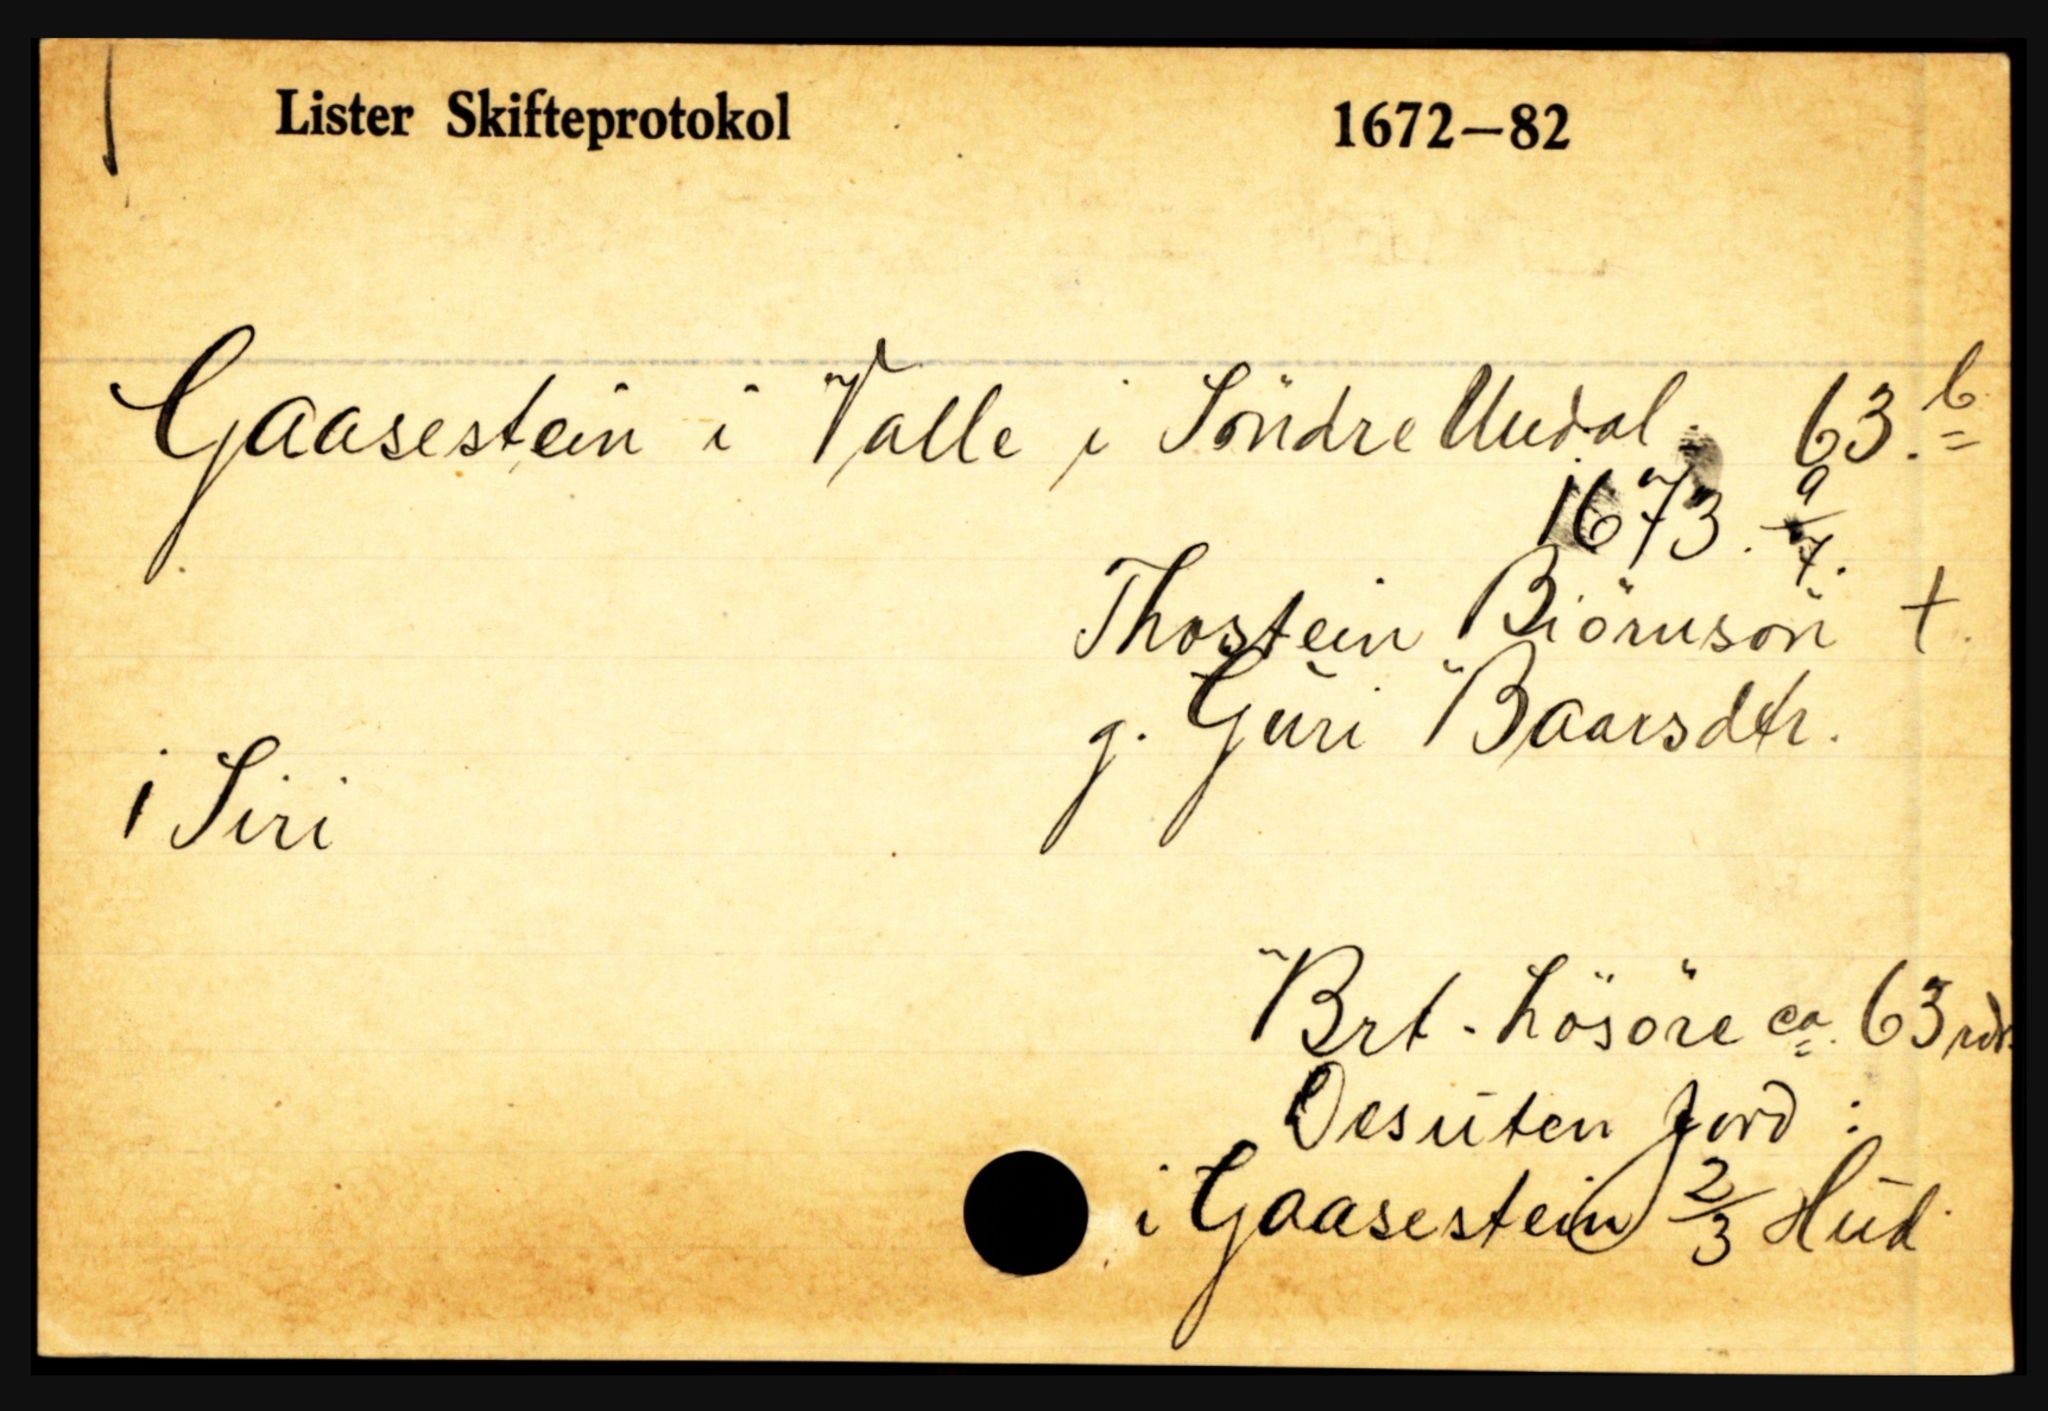 Lister Skifteprotokol 1672–82
Gaasestein i Valle i Söndre Undal. 63.b
1673. 9/7.
Thostein Biörnsön †.
g. Guri Baarsdtr.
1 Siri
Brt. Lösöre ca. 63 rdr.
Desuten Jord :
i Gaasestein 2/3 Hud